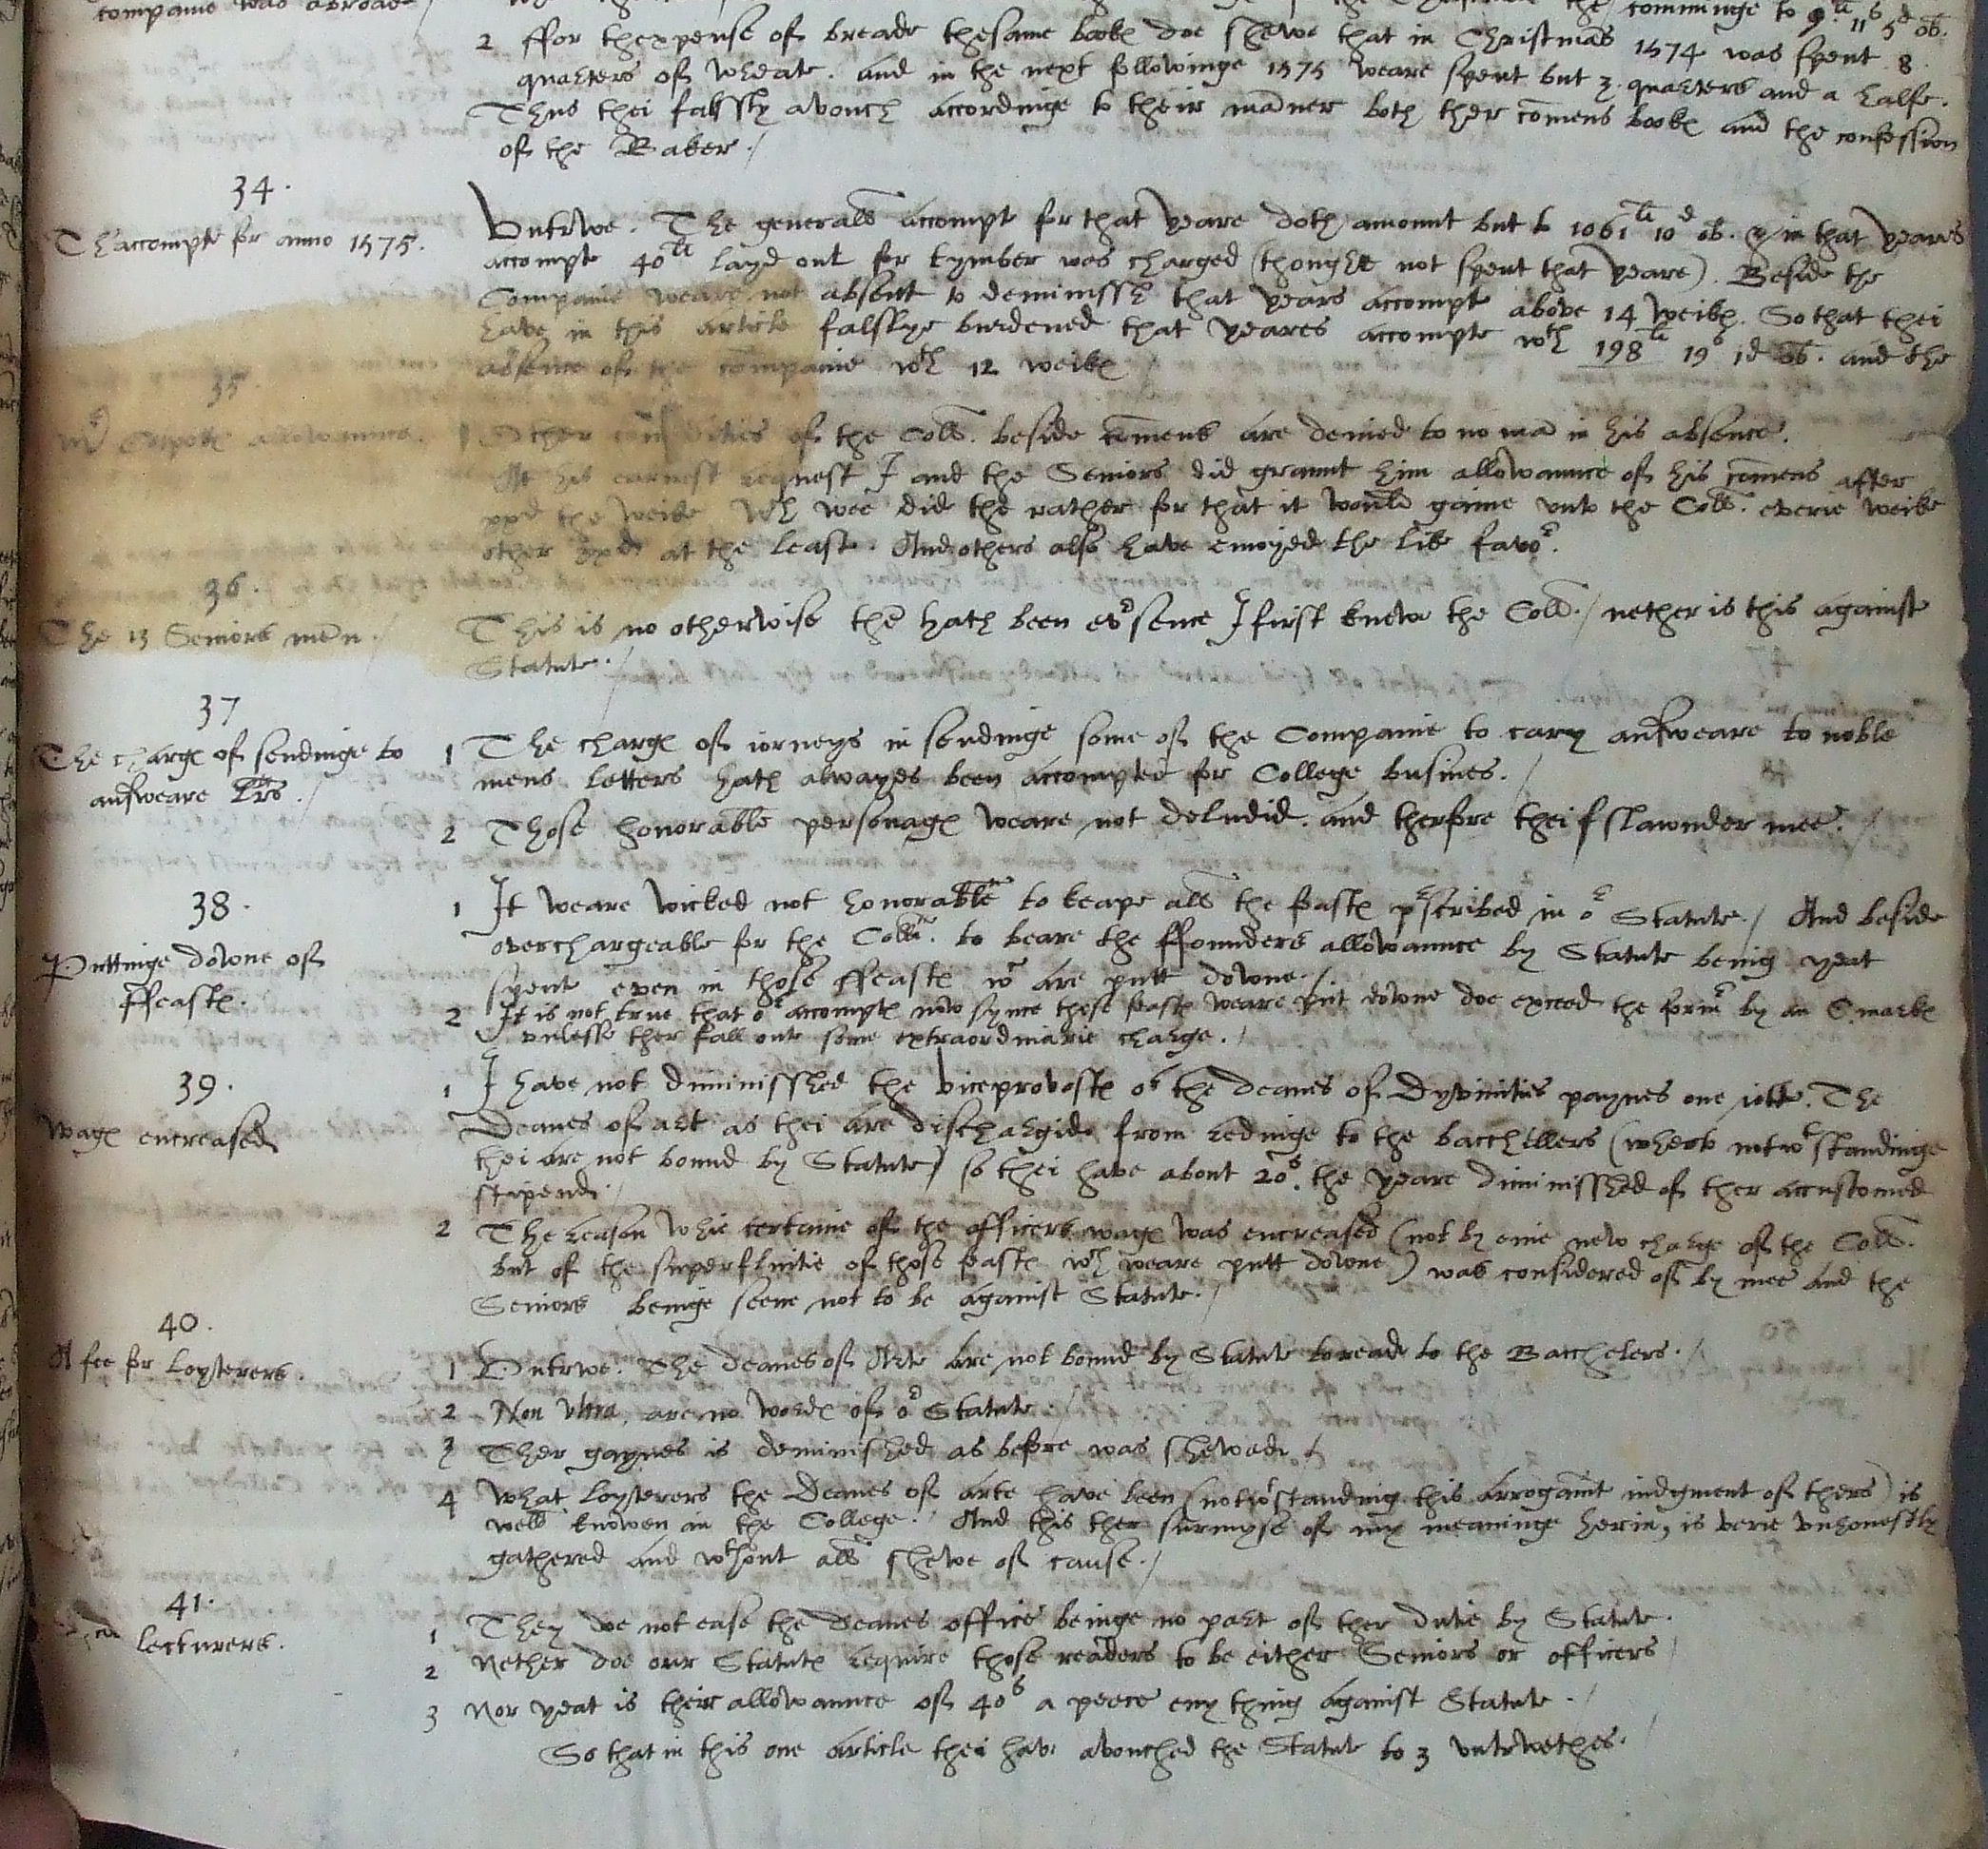 companie was abroade /
the comminge to 9li 11s 5d ob.
2 ffor thexpense of breade thesame bookes doe shewe that in Christmas 1574 was spent 8
quarters of wheate. and in the next followinge 1575 weare spent but 3. quarters and a halfe.
Thus thei falssly avouch accordinge to their māner both ther cōmens bookes and the confession
of the Baker. /
34.
Th'accompte for anno 1575.
Vntrwe. The generall accompt for that yeare doth amount but to 1061li 10d ob. in that years
accompte 40li layd out for tymber was charged (thoughe not spent that yeare). Beside the
Companie weare not absent to deminissh that years accompte above 14 weikes. So that thei
have in this article falslye burdened that yeares accompte wth 198li 19s 1d ob. and the
absence of the companie wth 12 weikes
35.
allowannce.
1 Other of the Coll. beside cōmens are denied to no mā in his absence.
At his earnest request I and the Seniors did graunt him allowannce of his cōmens after
xxd the weike wch wee did the rather for that it would gaine vnto the Coll. everie weike
other xxd at the least. And others also have enioyed the like favor.
36.
The 13 Seniors mēn. /
This is no otherwise thē hath been evr sence I first knew the Coll. / nether is this against
Statute. /
37
The charges of sendinge to
answeare Lrs. /
1 The charges of iorneys in sendinge some of the Companie to cary answeare to noble
mens letters hath alwayes been accompted for College busines. /
2 Those honorable personages weare not deludid. and therfore thei slawnder mee. /
38.
Puttinge downe of
ffeastes.
1 It weare wicked not honorable to keape all the feastes prscribed in or Statute. / And beside
overchargeable for the Coll. to beare the ffounders allowannce by Statute being yeat
spent even in those ffeastes wch are putt downe. /
2 It is not true that or accomptes now synce these feastes weare put downe doe exceed the formr by an C. markes
vnlesse ther fall oute some extraordinarie charge. /
39.
Wages encreased
1 I have not diminisshed the viceprovostes or the deanes of Dyvinities paynes one iotte. The
Deanes of art as thei are dischargide from redinge to the bacchillers (wherto notwthstandinge
thei are not bound by Statute) so thei have about 20s. the yeare diminisshed of ther accustomed
stipend. /
2 The reason whie certaine of the officers wages was encreased (not by anie new charge of the Coll.
but of the superfluitie of those feastes wch weare putt downe) was considered of by mee and the
Seniors beinge seene not to be against Statute. /
40.
A fee for Loyterers.
1 Vntrwe. The deanes of Arte are not bound by Statute to reade to the Bacchelers. /
2 Non vltra, are no wordes of or Statute /
3 Ther gaynes is deminished as before was shewed. /
4 What loyterers the Deanes of arte have been (notwthstanding this arrogannt iudgment of thers) is
well knowen in the College. And this ther surmyse of my meaninge herin, is verie vnhonestly
gathered and wthout all shewe of cause. /
41.
lecturers.
1 They doe not ease the deanes office beinge no part of ther dutie by Statute.
2 Nether doe our Statutes require those readers to be either Seniors or officers /
3 Nor yeat is their allowannce of 40s a peece eny thing against Statute. /
So that in this one article thei have avouched the Statute to 3 vntrwethes. /